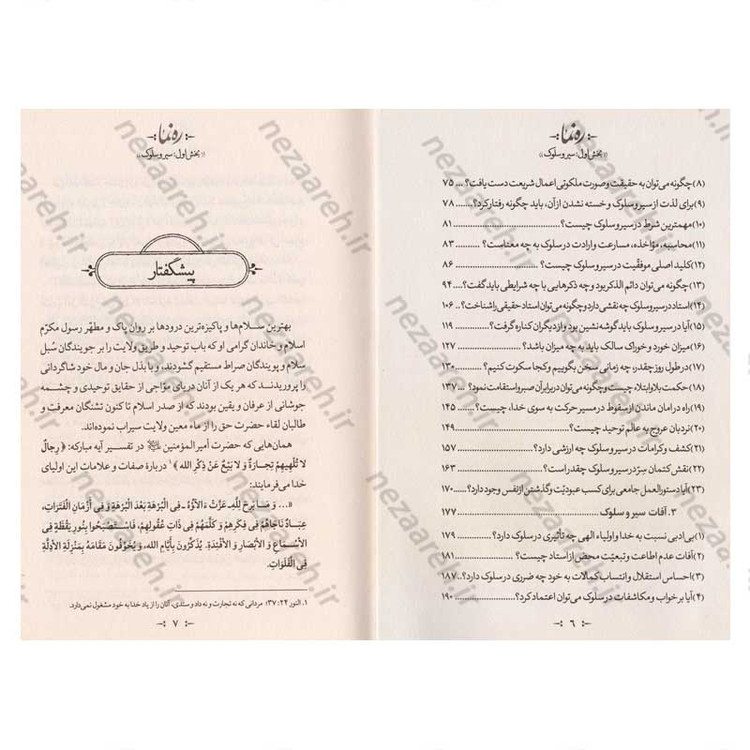 ره نما
«بخش اول: سیر و سلوک»
(۸) چگونه می‌توان به حقیقت و صورت ملکوتی اعمال شریعت دست یافت؟ ... ۷۵
(۹) برای لذت از سیر و سلوک و خسته نشدن از آن، باید چگونه رفتار کرد؟ ... ۷۸
(۱۰) مهمترین شرط در سیر و سلوک چیست؟ ... ۸۱
(۱۱) محاسبه، مؤاخذه، مسارعت و ارادت در سلوک به چه معناست؟ ... ۸۳
(۱۲) کلید اصلی موفقیّت در سیر و سلوک چیست؟ ... ۸۶
(۱۳) چگونه می‌توان دائم الذکر بود و چه ذکرهایی با چه شرایطی باید گفت؟ ... ۹۴
(۱۴) استاد در سیر و سلوک چه نقشی دارد و چگونه می‌توان استاد حقیقی را شناخت؟ .. ۱۰۶
(۱۵) آیا در سیر و سلوک باید گوشه نشین بود و از دیگران کناره گرفت؟ ... ۱۱۹
(۱۶) میزان خورد و خوراک سالک باید به چه میزان باشد؟ ... ۱۲۷
(۱۷) در طول روز چقدر، چه زمانی سخن بگوییم و کجا سکوت کنیم؟ ... ۱۳۰
(۱۸) حکمت بلا و ابتلاء چیست و چگونه می‌توان در برابر آن صبر و استقامت نمود؟ ... ۱۳۷
(۱۹) راه در امان ماندن از سقوط در مسیر حرکت به سوی خدا، چیست؟ ... ۱۴۵
(۲۰) نردبان عروج به عالم توحید چیست؟ ... ۱۴۹
(۲۱) کشف و کرامات در سیر و سلوک چه ارزشی دارد؟ ... ۱۵۷
(۲۲) نقش کتمان سِرّ در سیر و سلوک چقدر است؟ ... ۱۶۳
(۲۳) آیا دستورالعمل جامعی برای کسب عبودیّت و گذشتن از نفس وجود دارد؟ ... ۱۷۰
۳. آفات سیر و سلوک ... ۱۷۷
(۱) بی ادبی نسبت به خدا و اولیاء الهی چه تأثیری در سلوک دارد؟ ... ۱۷۹
(۲) آفات عدم اطاعت و تبعیّت محض از استاد چیست؟ ... ۱۸۱
(۳) احساس استقلال و انتساب کمالات به خود چه ضرری در سلوک دارد؟ .. ۱۸۷
(۴) آیا بر خواب و مکاشفات در سلوک می‌توان اعتماد کرد؟ ... ۱۹۰
۶
ره نما
«بخش اول: سیر و سلوک»
پیشگفتار
بهترین سلام‌ها و پاکیزه‌ترین درودها بر روان پاک و مطهّر رسول مکرّم
اسلام و خاندان گرامی او که باب توحید و طریق ولایت را بر جویندگان سُبل
سلام و پویندگان صراط مستقیم گشودند، و با بذل جان و مال خود شاگردانی
را پروریدند که هر یک از آنان دریای موّاجی از حقایق توحیدی و چشمه
جوشانی از عرفان و یقین بودند که از صدر اسلام تا کنون تشنگان معرفت و
طالبان لقاء حضرت حق را از ماء معین ولایت سیراب نموده‌اند.
همان‌هایی که حضرت أمیرالمؤمنین ﷺ در تفسیر آیه مبارکه: ﴿رِجالٌ
لا تُلْهِیهِمْ تِجارَةٌ وَ لا بَیْعٌ عَنْ ذِکْرِ اللهِ﴾۱ دربارهٔ صفات و علامات این اولیای
خدا می‌فرمایند:
«... وَ مَا بَرِحَ لِلَّهِ عَزَّتْ ءَالَآؤُهُ فِی الْبُرْهَةِ بَعْدَ الْبُرْهَةِ وَ فِی أَزْمَانِ الْفَتَرَاتِ،
عِبَادٌ نَاجَاهُمْ فِی فِکْرِهِمْ وَ کَلَّمَهُمْ فِی ذَاتِ عُقُولِهِمْ، فَاسْتَصْبَحُوا بِنُورِ یَقَظَةٍ فِی
الْأَسْمَاعِ وَ الْأَبْصَارِ وَ الْأَفْئِدَةِ. یُذَکِّرُونَ بِأَیَّامِ اللهِ، وَ یُخَوِّفُونَ مَقَامَهُ بِمَنْزِلَةِ الْأَدِلَّةِ
فِی الْفَلَوَاتِ.
۱. النور ۲۴: ۳۷؛ مردانی که نه تجارت و نه داد و ستدی، آنان را از یاد خدا به خود مشغول نمی‌دارد.
۷
nezaareh.ir